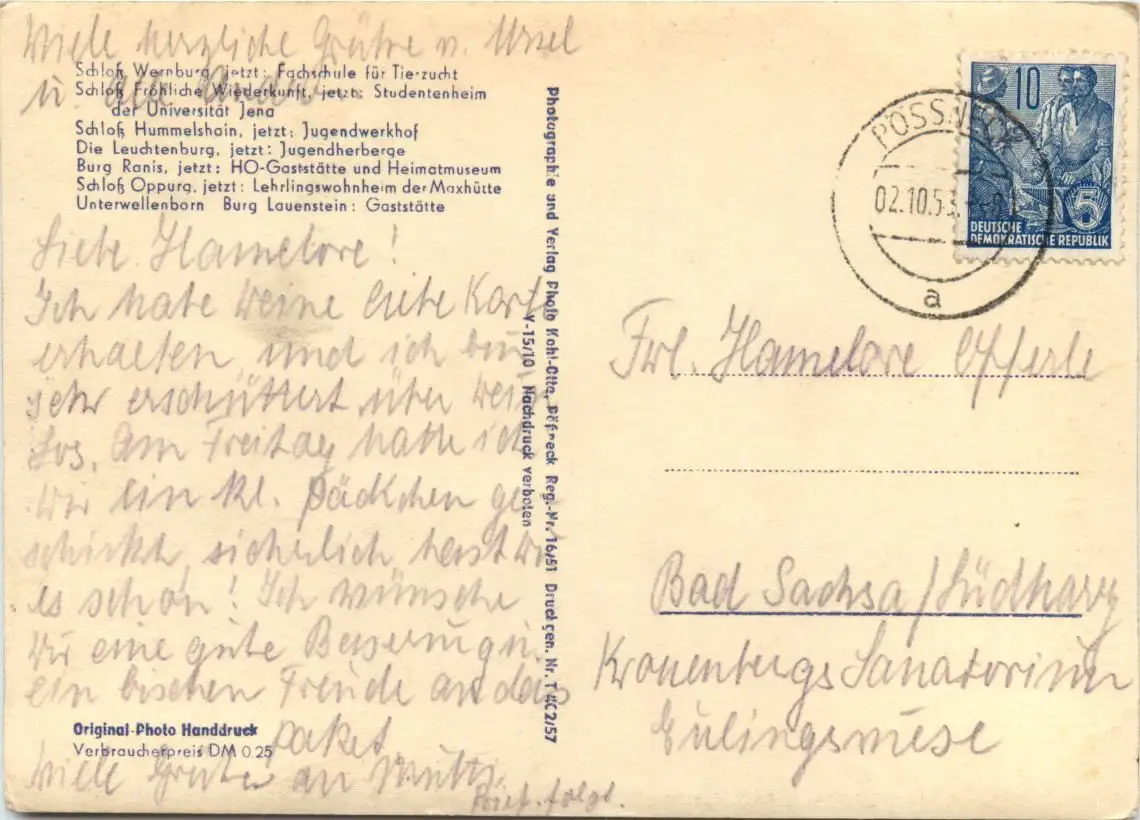 Viele herzliche Grüße v. Ursel
u. alle Andern.
Schloß Wernburg, jetzt: Fachschule für Tierzucht
Schloß Fröhliche Wiederkunft, jetzt: Studentenheim
der Universität Jena
Schloß Hummelshain, jetzt: Jugendwerkhof
Die Leuchtenburg, jetzt: Jugendherberge
Burg Ranis, jetzt: HO-Gaststätte und Heimatmuseum
Schloß Oppurg, jetzt: Lehrlingswohnheim der Maxhütte
Unterwellenborn Burg Lauenstein: Gaststätte
Liebe Hannelore!
Ich habe Deine liebe Karte
erhalten und ich bin
sehr erschüttert über Dein
Los. Am Freitag hatte ich
Dir ein kl. Päckchen ge
schickt, sicherlich hast Du
es schon! Ich wünsche
Dir eine gute Besserung u.
ein bischen Freude an das
Paket.
Viele Grüße an Mutti.
Brief folgt.
Original-Photo Handdruck
Verbraucherpreis DM 0.25
Photographie und Verlag Photo Kohl-Otte, Pößneck Reg.-Nr. 16/51 Druckgen. Nr. T 4C2/57
V-15/10 Nachdruck verboten
10
5
DEUTSCHE
DEMOKRATISCHE REPUBLIK
PÖSSNECK
02.10.53
a
Frl. Hannelore Offerle
Bad Sachsa/Südharz
Kronenbergs Sanatorium